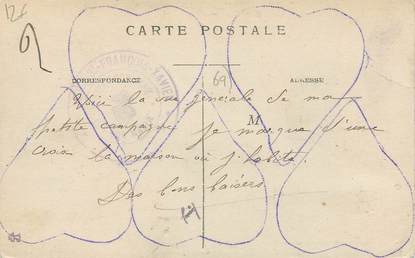 12f
CARTE POSTALE
CORRESPONDANCE
ADRESSE
69
Voici la vue générale de ma
M
petite campagne je marque d'une
croix la maison où j'habite.
Des bons baisers